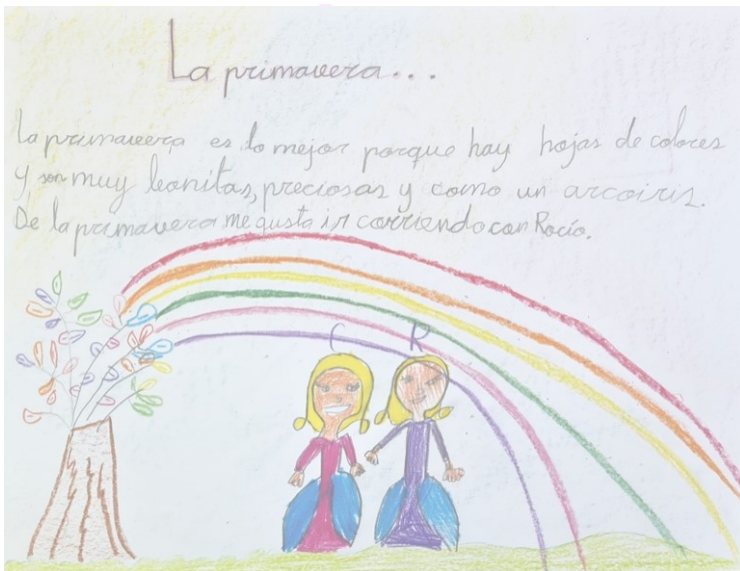 La primavera...
La primavera es lo mejor porque hay hojas de colores
y son muy bonitas, preciosas y como un arcoiris.
De la primavera me gusta ir corriendo con Rocío.
C R